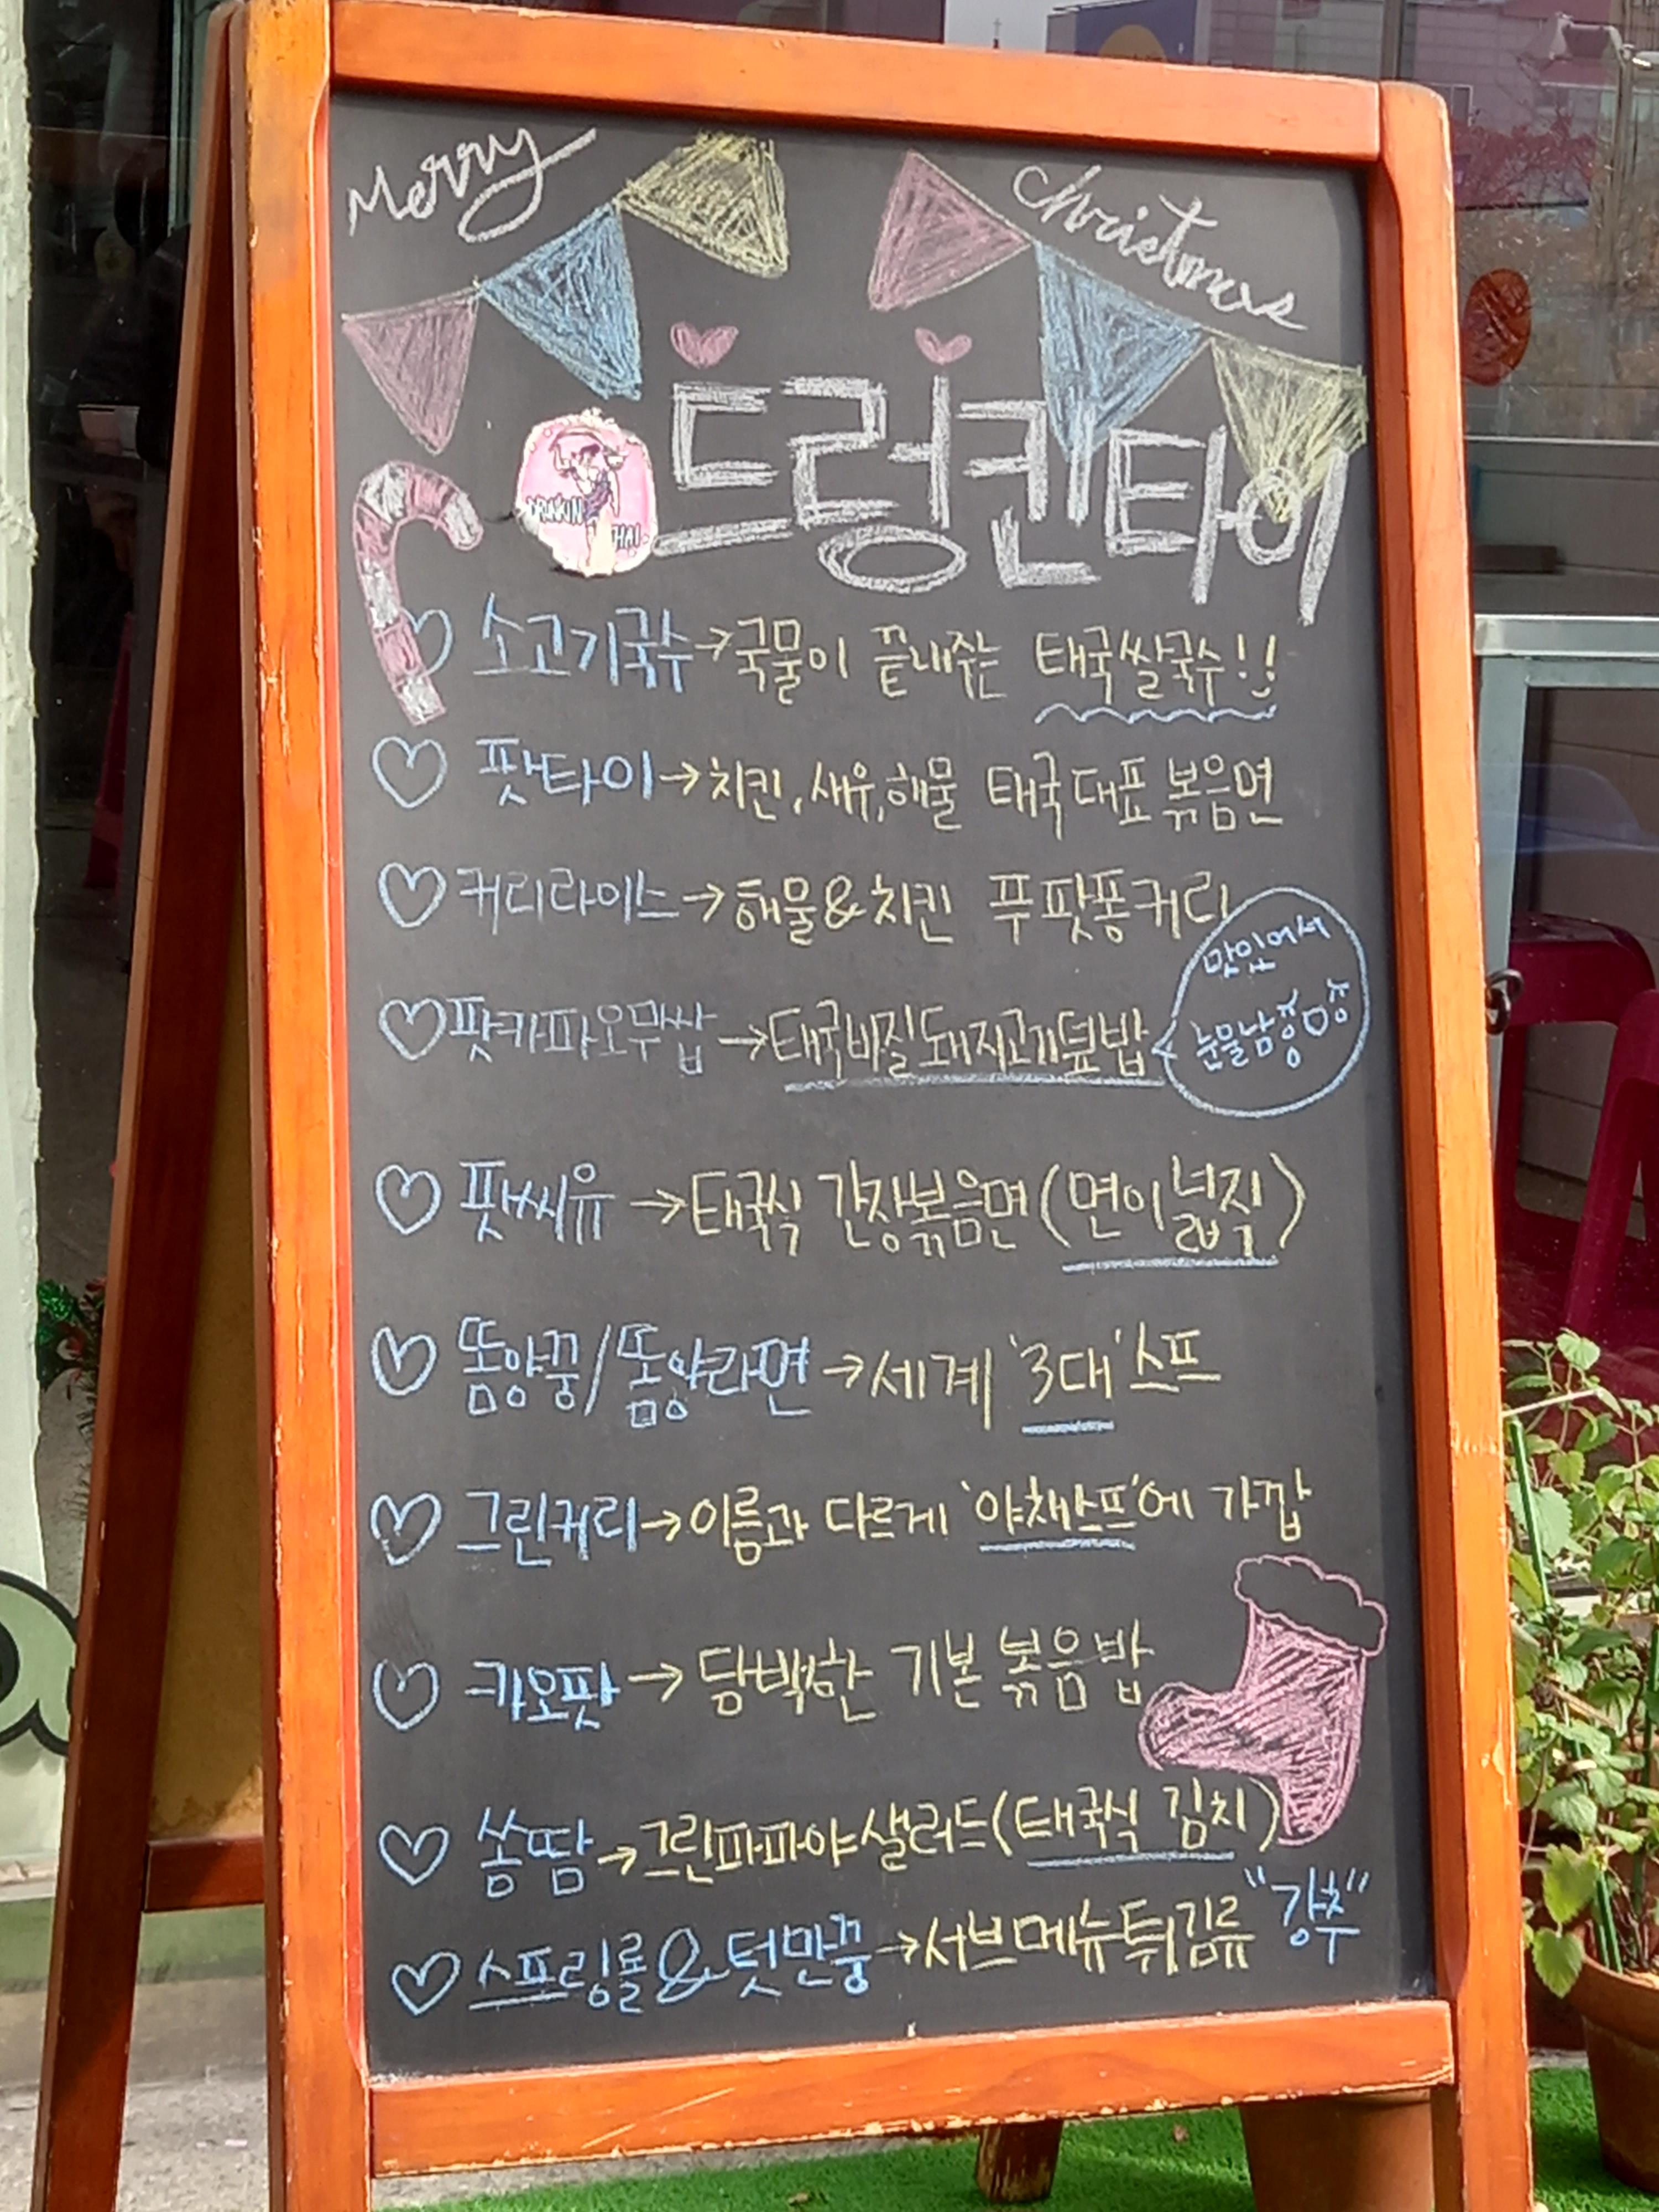 Merry Christmas
드렁킨타이
DRUNKIN THAI
소고기국수→국물이 끝내주는 태국쌀국수!!
팟타이→치킨,새우,해물 태국대표 볶음면
커리라이스→해물&치킨 푸팟퐁커리
팟카파오무쌉→태국바질돼지고기덮밥
맛있어서
눈물남
팟씨유→태국식 간장볶음면(면이넓적)
똠양꿍/똠양라면→세계 '3대'스프
그린커리→이름과 다르게 '야채스프'에 가깝
카오팟→담백한 기본 볶음밥
쏨땀→그린파파야샐러드(태국식 김치)
스프링롤&텃만꿍→서브메뉴튀김류 "강추"